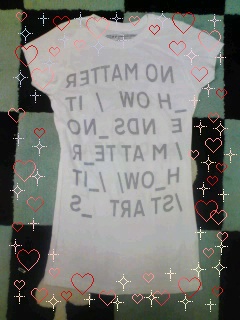 NO MATTER
_H OW / IT
E NDS_NO
/ M ATTE_R
H_OW_/ IT_
/ST ART _S